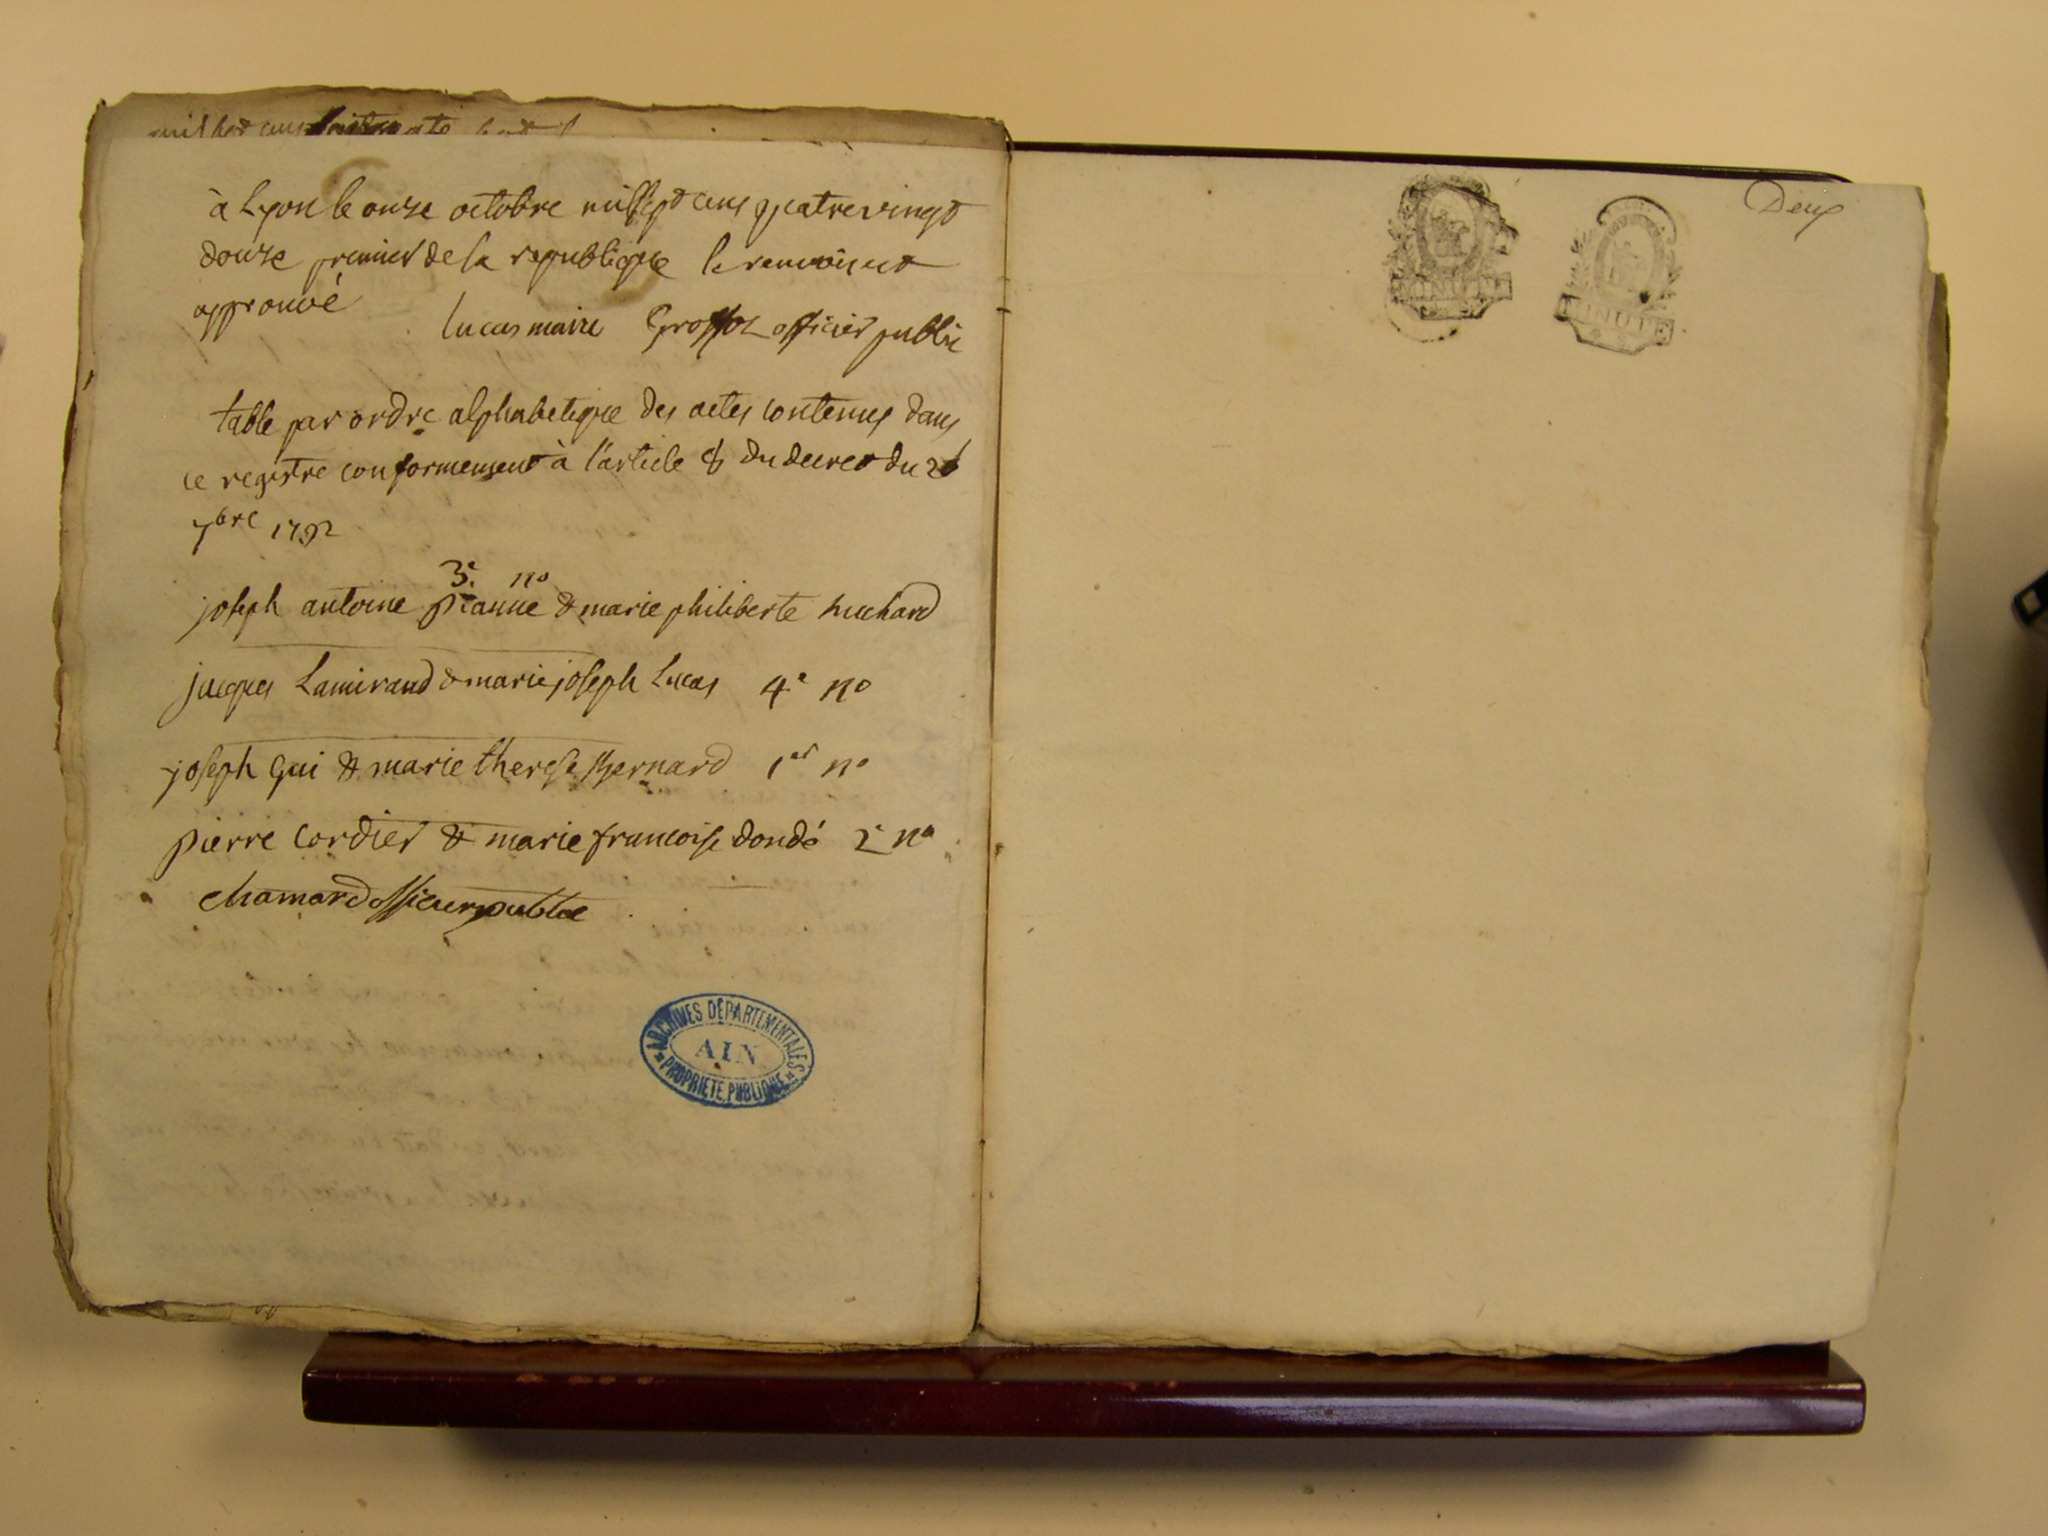 à Lyon le onze octobre mil sept cens quatrevingt
douze premier de la republique le renvoi est
approuvé
Lucas maire officier public
table par ordre alphabetique des actes contenus dans
ce registre conformement à l'article 8 du decret du 20
7bre 1792
3e no
joseph antoine & marie philiberte huchard
jacques Lamirand & marie joseph Lucas 4e no
joseph gui & marie therese Bernard 1er no
pierre cordier & marie francoise dondé 2e no
chamard officier public
ARCHIVES DÉPARTEMENTALES
AIN
PROPRIÉTÉ PUBLIQUE
Deux
MINUTE
MINUTE